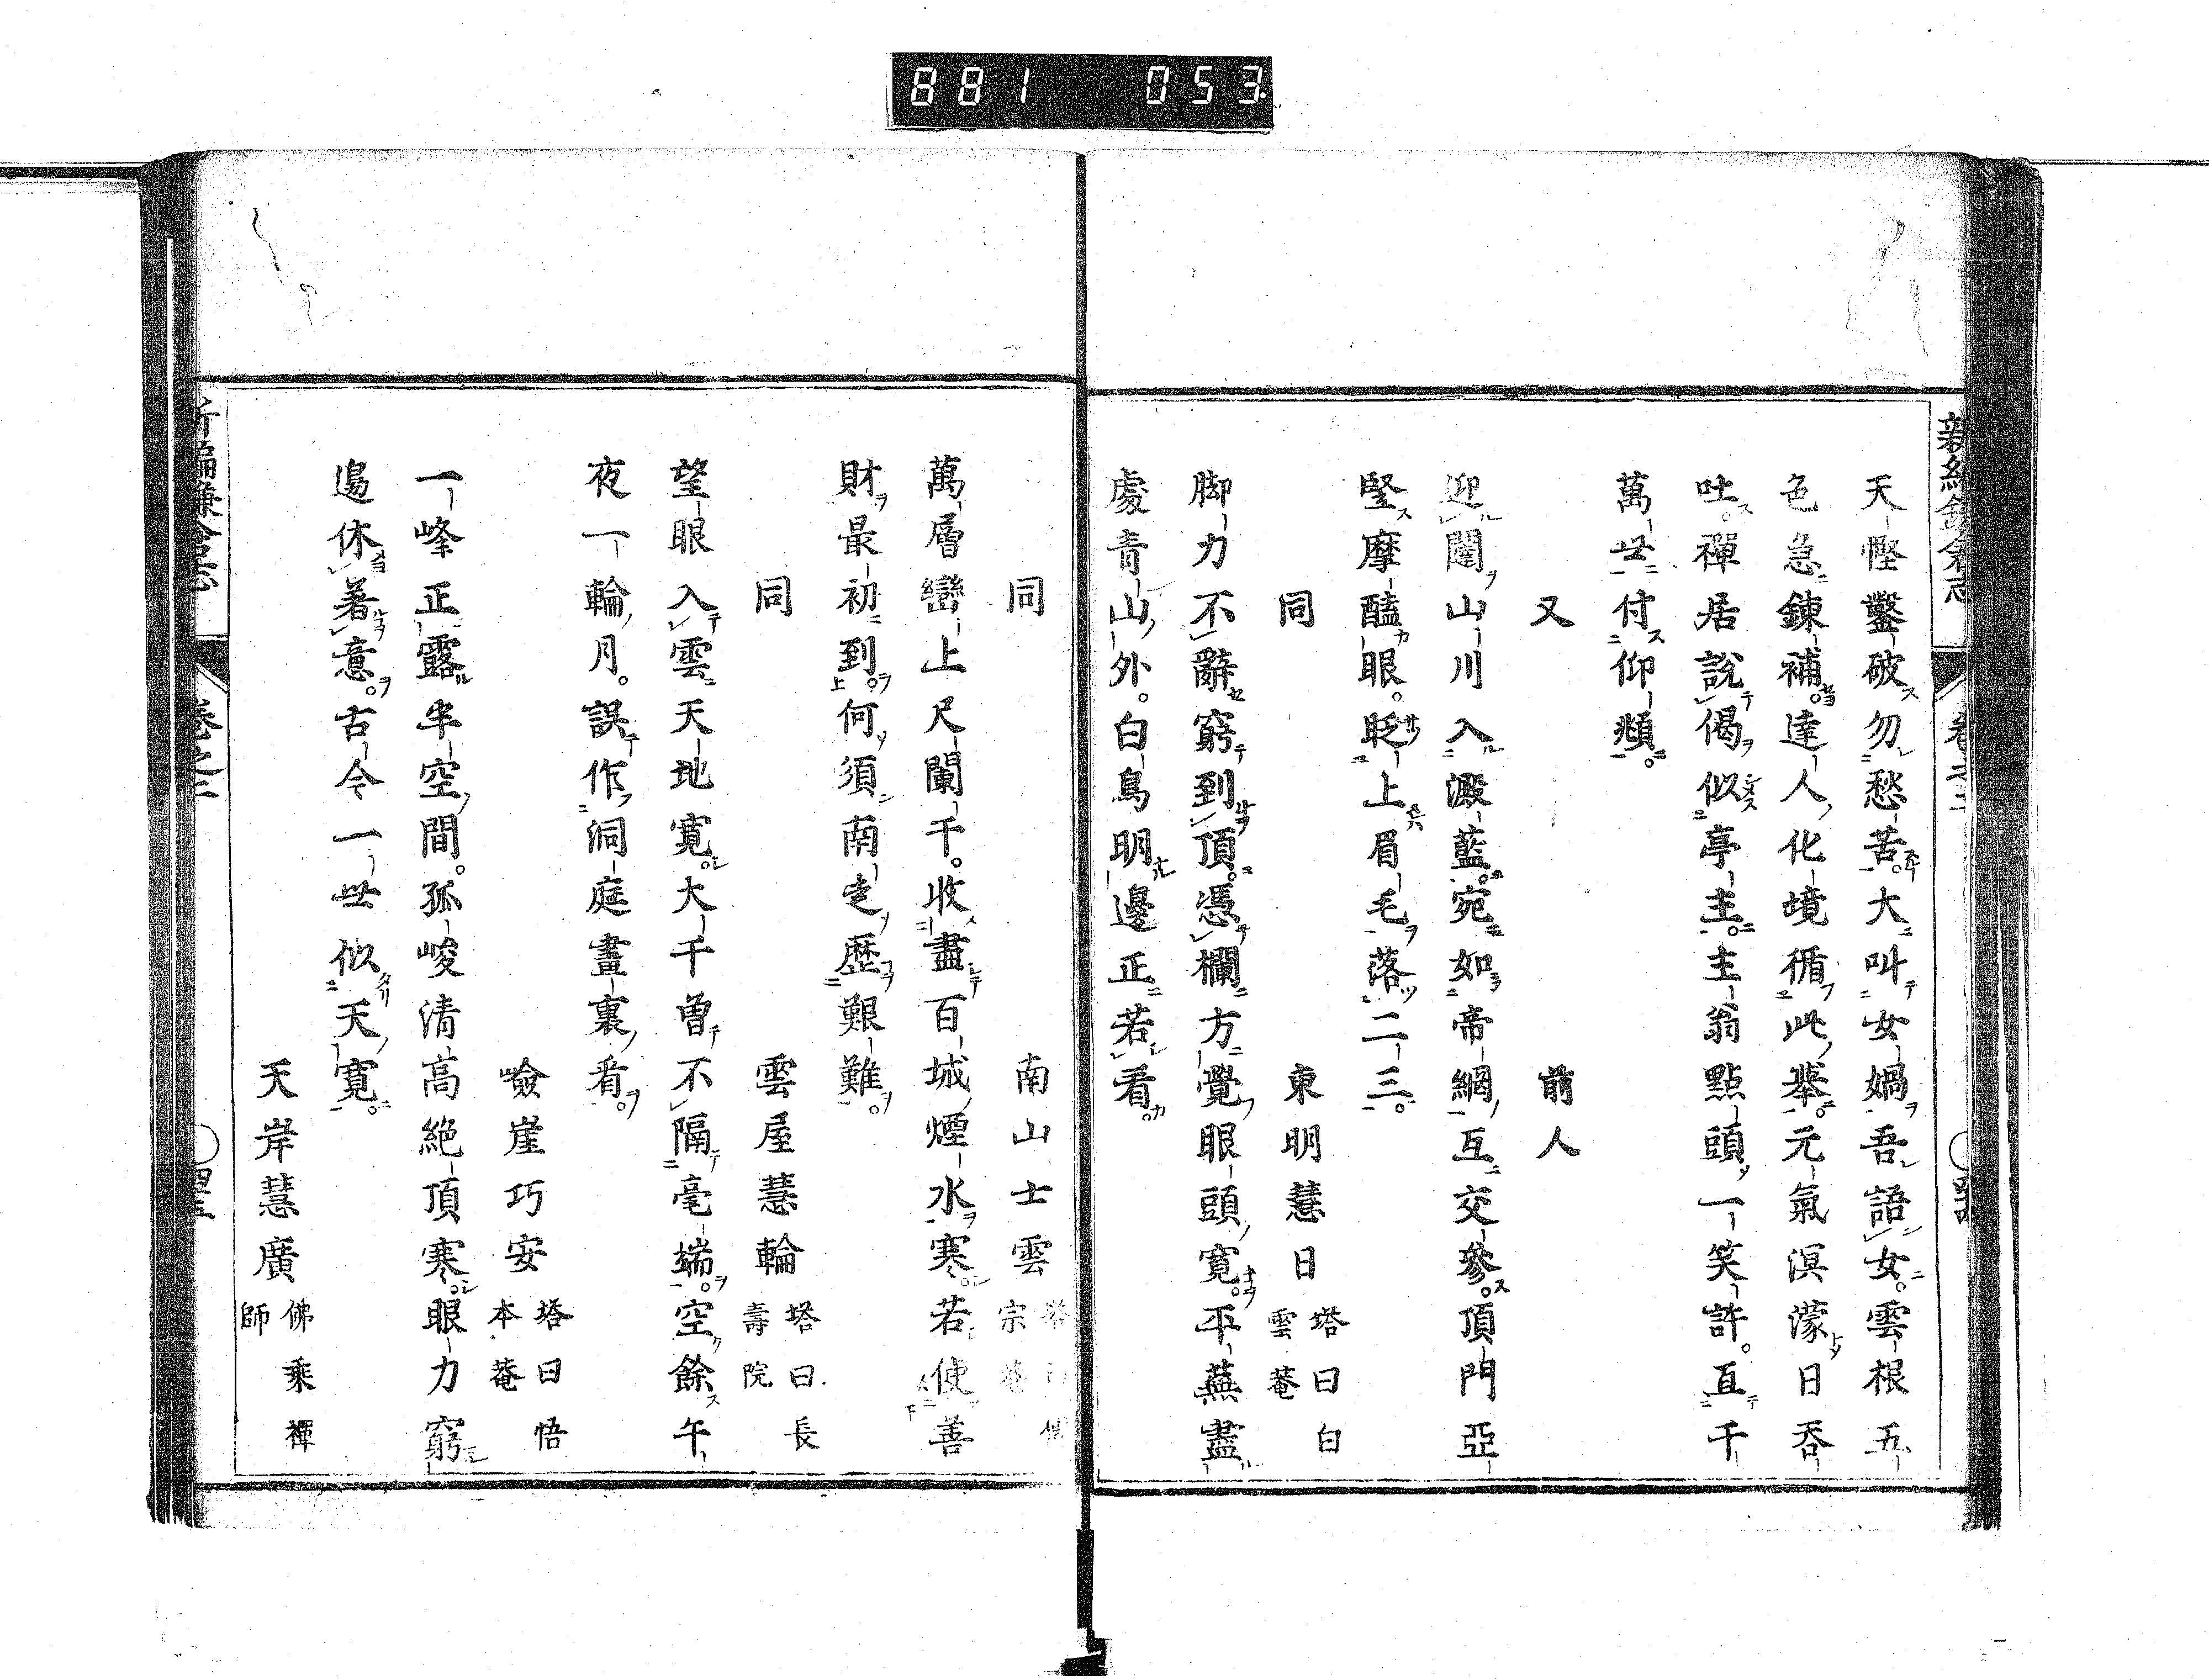 881 053
新編鎌倉志 卷之二
天慳鑿破勿愁苦。大叫女媧吾語女。雲根五
色急鍊補。達人化境循此擧。元氣溟濛日吞
吐。禪居說偈似亭主。主翁點頭一笑許。直千
萬世付仰頫。
又 前人
迎闥山川入澱藍。宛如帝網互交參。頂門亞
竪摩醯眼。眨上眉毛落二三。
同 東明慧日 塔曰白雲菴
脚力不辭窮到頂。憑欄方覺眼頭寬。平蕪盡
處青山外。白鳥明邊正若看。
同 南山士雲
萬層巒上尺闌干。收盡百城煙水寒。若使善
財最初到。何須南走歷艱難。
同 雲屋慧輪 塔曰長壽院
望眼入雲天地寬。大千曾不隔毫端。空餘午
夜一輪月。誤作洞庭畫裏看。
嶮崖巧安 塔曰悟本菴
一峰正露半空間。孤峻清高絶頂寒。眼力窮
邊休著意。古今一世似天寬。
天岸慧廣 佛乘禪師
新編鎌倉志 卷之二